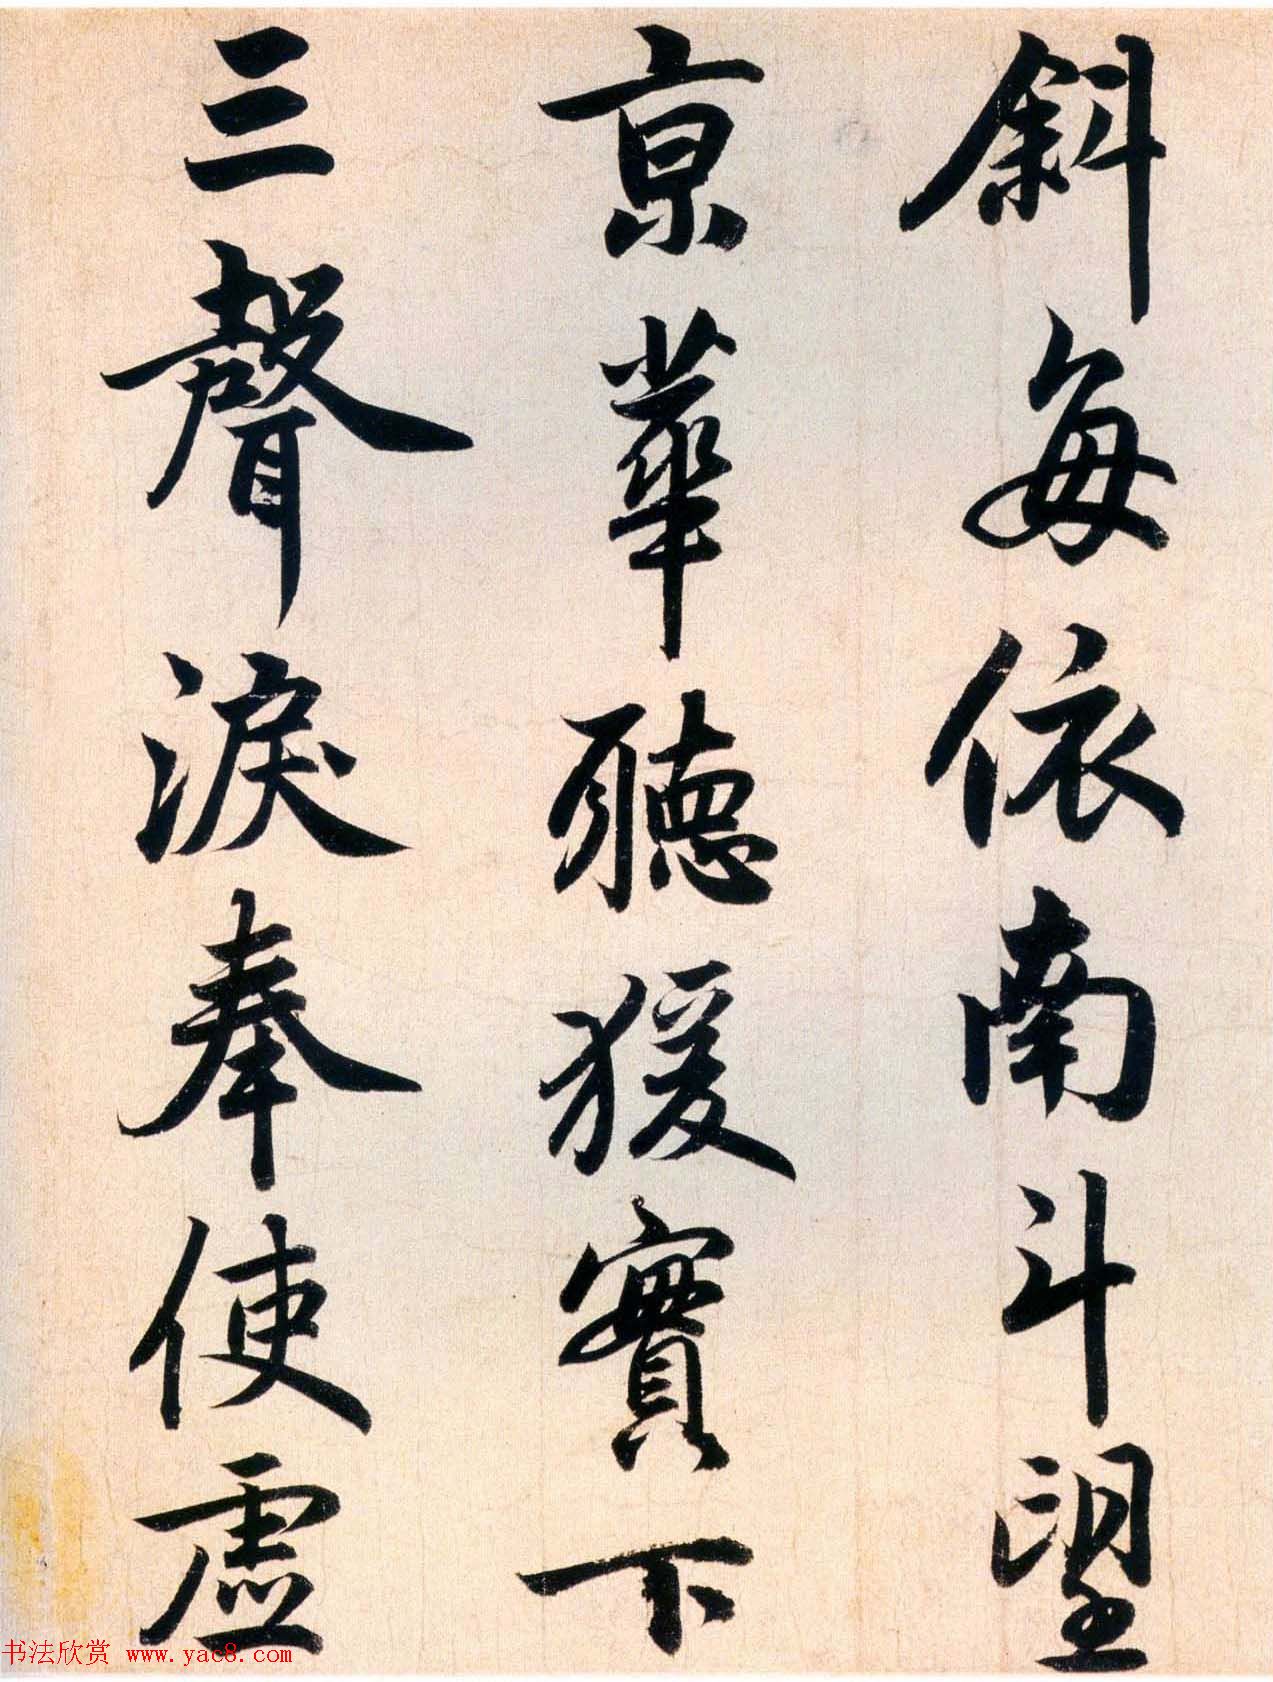 斜每依南斗望
京華聽猨實下
三聲淚奉使虛
书法欣赏 www.yac8.com